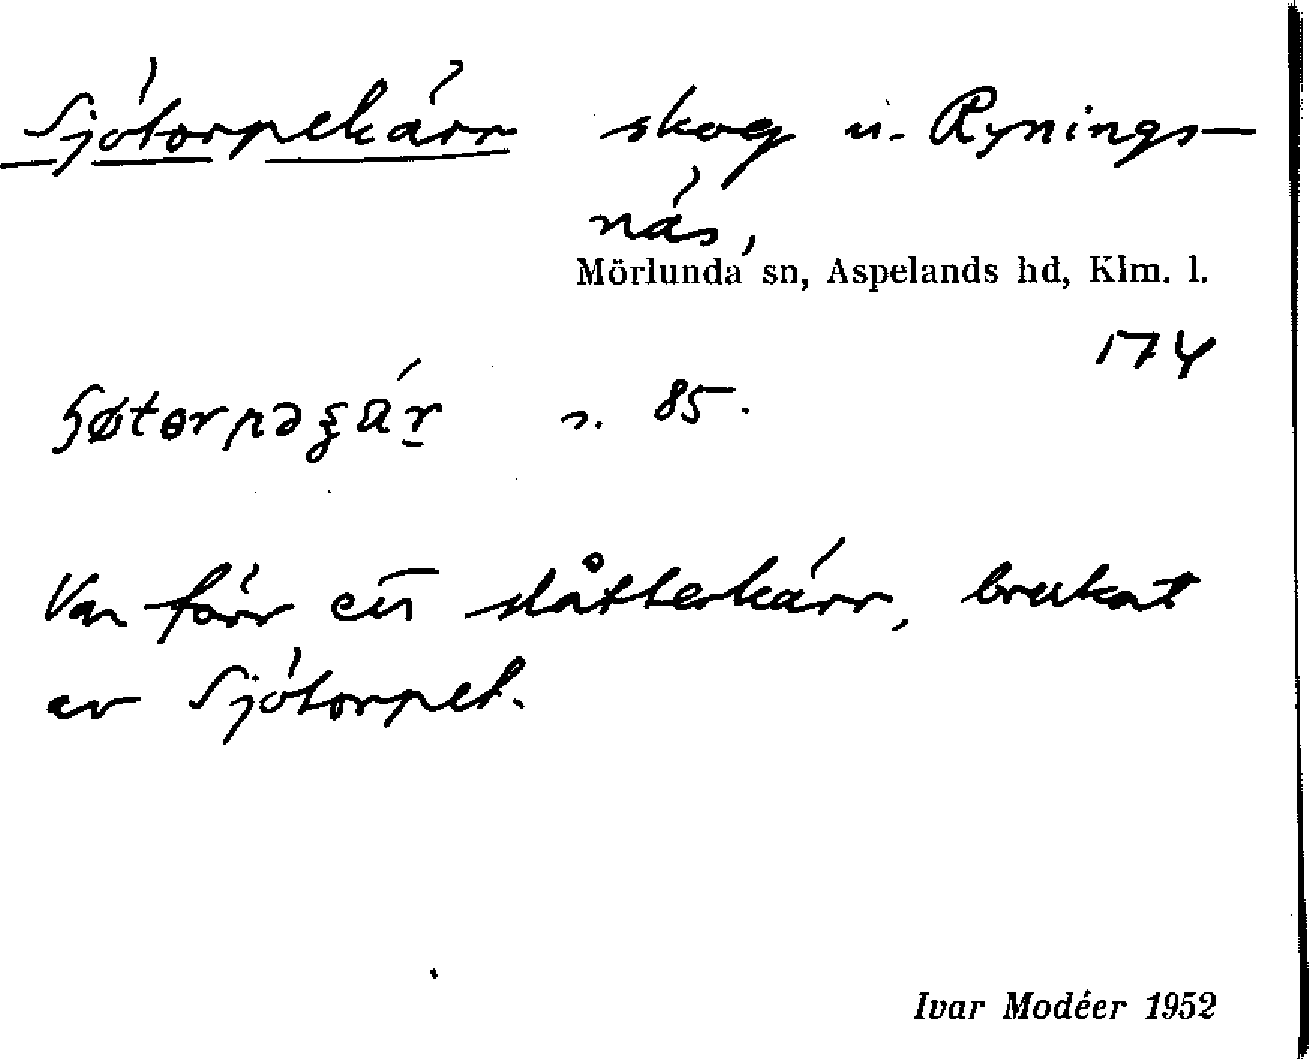 Sjötorpekärr skog u. Rynings-
näs,
Mörlunda sn, Aspelands hd, Klm. l.
174
s. 85.
Var förr ett slåtterkärr, brukat
av Sjötorpet.
Ivar Modéer 1952